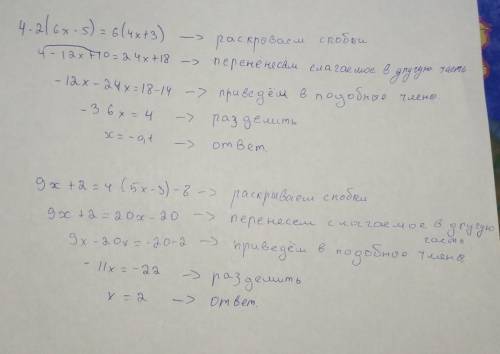 4-2(6x-5)=6(4x+3) —> раскрываем скобки
4-12x+10=24x+18 —> перенесем слагаемое в другую часть
-12x-24x=18-14 —> приведём в подобное члене
-36x=4 —> разделить
x=-0,1 —> ответ.
9x+2=4(5x-3)-8 —> раскрываем скобки
9x+2=20x-20 —> перенесем слагаемое в другую часть
9x-20x=-20-2 —> приведём в подобное члене
-11x=-22 —> разделить
x=2 —> ответ.